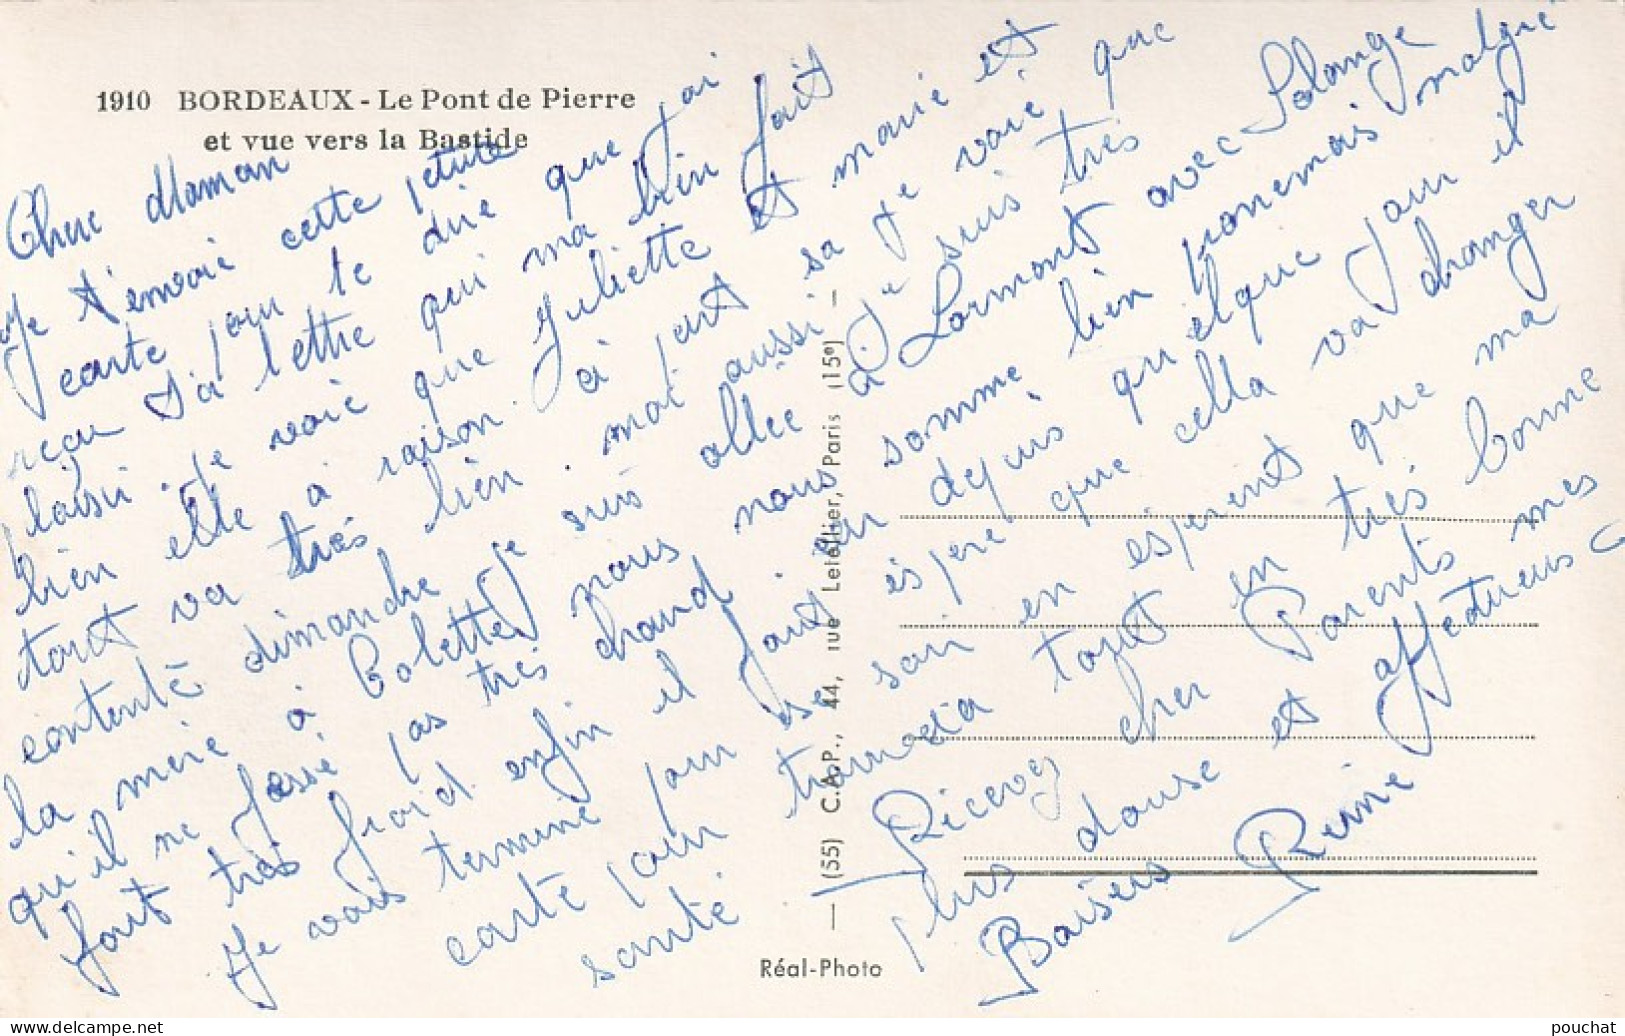 1910 BORDEAUX - Le Pont de Pierre
et vue vers la Bastide
Chere Maman
Je t'envoie cette petite
carte pour te dire que j'ai
reçu ta lettre qui ma bien fait
plaisir. Je voie que Juliette et marie et
bien elle à raison. à part sa je voie que
tout va très bien. moi aussi je suis très
contente dimanche je suis allée à Lormont avec Solange
la mere à Colette nous nous somme bien promemais malgré
qu'il ne fassé pas très chaud
fout très froid enfin il fait
depuis quelque jour il
espere que cella va changer
Je vais terminé pour se soir en espérent que ma
carte pour trouvera tout en très bonne
santé
Recevez cher Parents mes
plus douse et affectueus
Baisers Reine
— (55) C.A.P., 44, rue Letellier, Paris (15e) —
Réal-Photo
pouchat